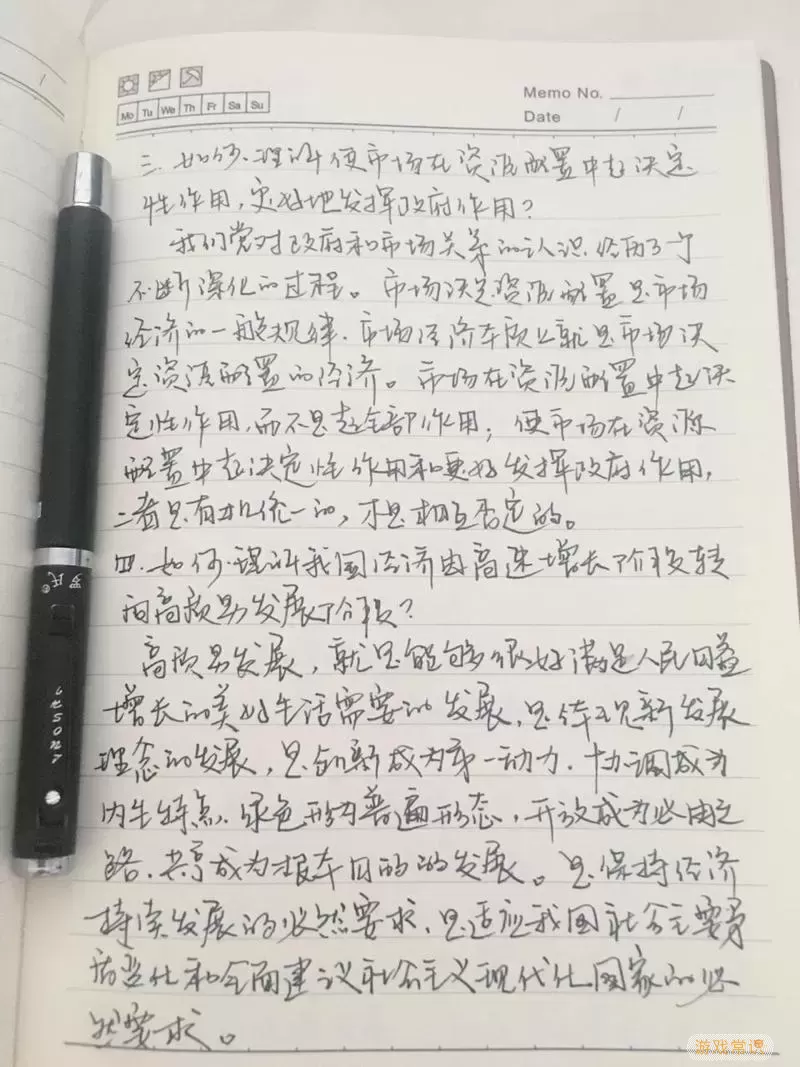 Memo No.
Mo Tu We Th Fr Sa Su
Date / /
三、如何理解使市场在资源配置中起决定
性作用,更好地发挥政府作用?
我们党对政府和市场关系的认识,经历了一个
不断深化的过程。市场决定资源配置是市场
经济的一般规律,市场经济本质上就是市场决
定资源配置的经济。市场在资源配置中起决
定性作用,而不是起全部作用;使市场在资源
配置中起决定性作用和更好发挥政府作用,
二者是有机统一的,不是相互否定的。
四、如何理解我国经济由高速增长阶段转
向高质量发展阶段?
高质量发展,就是能够很好满足人民日益
增长的美好生活需要的发展,是体现新发展
理念的发展,是创新成为第一动力、协调成为
内生特点、绿色成为普遍形态、开放成为必由之
路、共享成为根本目的的发展。是保持经济
持续发展的必然要求,是适应我国社会主要矛
盾变化和全面建设社会主义现代化国家的必
然要求。
罗氏®
游戏常谈